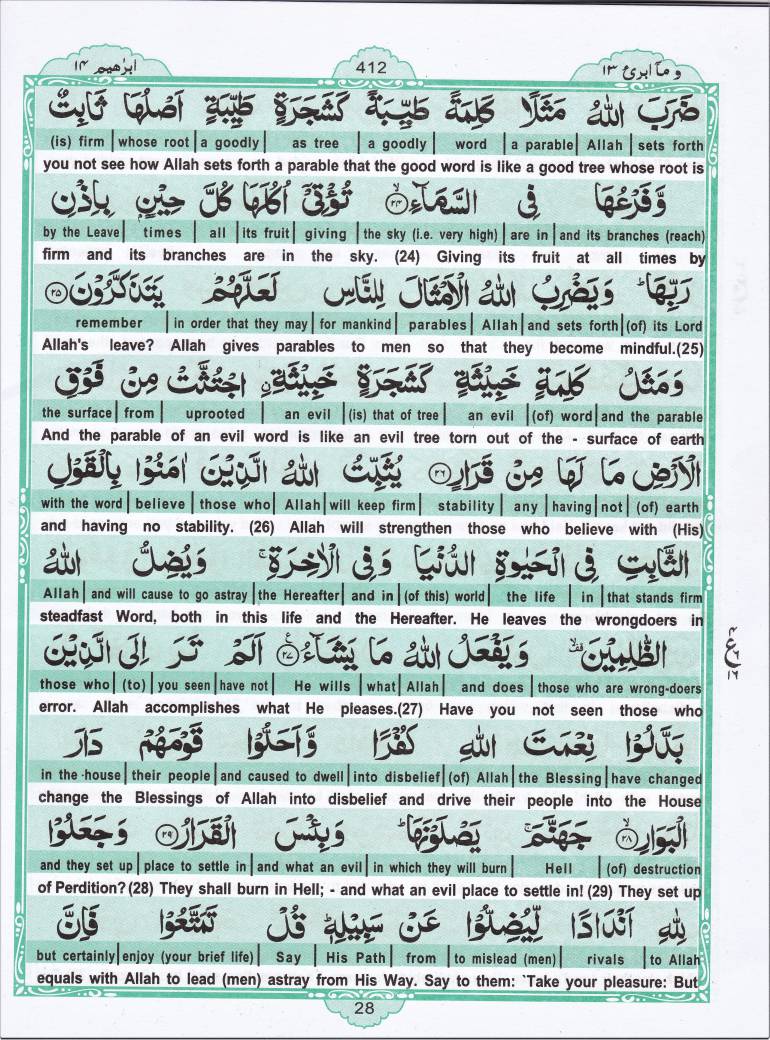 ابرٰهیم ۱۴ 412 و مآ ابرئ ۱۳
ضَرَبَ اللهُ مَثَلًا كَلِمَةً طَيِّبَةً كَشَجَرَةٍ طَيِّبَةٍ اَصْلُهَا ثَابِتٌ
(is) firm | whose root | a goodly | as tree | a goodly | word | a parable | Allah | sets forth
you not see how Allah sets forth a parable that the good word is like a good tree whose root is
وَّفَرْعُهَا فِى السَّمَآءِ ۙ﴿۲۴﴾ تُؤْتِىْٓ اُكُلَهَا كُلَّ حِيْنٍۭ بِاِذْنِ
by the Leave | times | all | its fruit | giving | the sky (i.e. very high) | are in | and its branches (reach)
firm and its branches are in the sky. (24) Giving its fruit at all times by
رَبِّهَا ؕ وَيَضْرِبُ اللهُ الْاَمْثَالَ لِلنَّاسِ لَعَلَّهُمْ يَتَذَكَّرُوْنَ ﴿۲۵﴾
remember | in order that they may | for mankind | parables | Allah | and sets forth | (of) its Lord
Allah's leave? Allah gives parables to men so that they become mindful.(25)
وَمَثَلُ كَلِمَةٍ خَبِيْثَةٍ كَشَجَرَةٍ خَبِيْثَةِ ۨ اجْتُثَّتْ مِنْ فَوْقِ
the surface | from | uprooted | an evil | (is) that of tree | an evil | (of) word | and the parable
And the parable of an evil word is like an evil tree torn out of the - surface of earth
الْاَرْضِ مَا لَهَا مِنْ قَرَارٍ ﴿۲۶﴾ يُثَبِّتُ اللهُ الَّذِيْنَ اٰمَنُوْا بِالْقَوْلِ
with the word | believe | those who | Allah | will keep firm | stability | any | having | not | (of) earth
and having no stability. (26) Allah will strengthen those who believe with (His)
الثَّابِتِ فِى الْحَيٰوةِ الدُّنْيَا وَفِى الْاٰخِرَةِ ۚ وَيُضِلُّ اللهُ
Allah | and will cause to go astray | the Hereafter | and in | (of this) world | the life | in | that stands firm
steadfast Word, both in this life and the Hereafter. He leaves the wrongdoers in
الظّٰلِمِيْنَ ۙ وَيَفْعَلُ اللهُ مَا يَشَآءُ ﴿۲۷﴾ اَلَمْ تَرَ اِلَى الَّذِيْنَ
those who | (to) | you seen | have not | He wills | what | Allah | and does | those who are wrong-doers
error. Allah accomplishes what He pleases.(27) Have you not seen those who
بَدَّلُوْا نِعْمَتَ اللهِ كُفْرًا وَّاَحَلُّوْا قَوْمَهُمْ دَارَ
in the house | their people | and caused to dwell | into disbelief | (of) Allah | the Blessing | have changed
change the Blessings of Allah into disbelief and drive their people into the House
الْبَوَارِ ۙ﴿۲۸﴾ جَهَنَّمَ ۚ يَصْلَوْنَهَا ؕ وَبِئْسَ الْقَرَارُ ﴿۲۹﴾ وَجَعَلُوْا
and they set up | place to settle in | and what an evil | in which they will burn | Hell | (of) destruction
of Perdition? (28) They shall burn in Hell; - and what an evil place to settle in! (29) They set up
لِلّٰهِ اَنْدَادًا لِّيُضِلُّوْا عَنْ سَبِيْلِهٖ ؕ قُلْ تَمَتَّعُوْا فَاِنَّ
but certainly | enjoy (your brief life) | Say | His Path | from | to mislead (men) | rivals | to Allah
equals with Allah to lead (men) astray from His Way. Say to them: `Take your pleasure: But
28
ع
۱۶